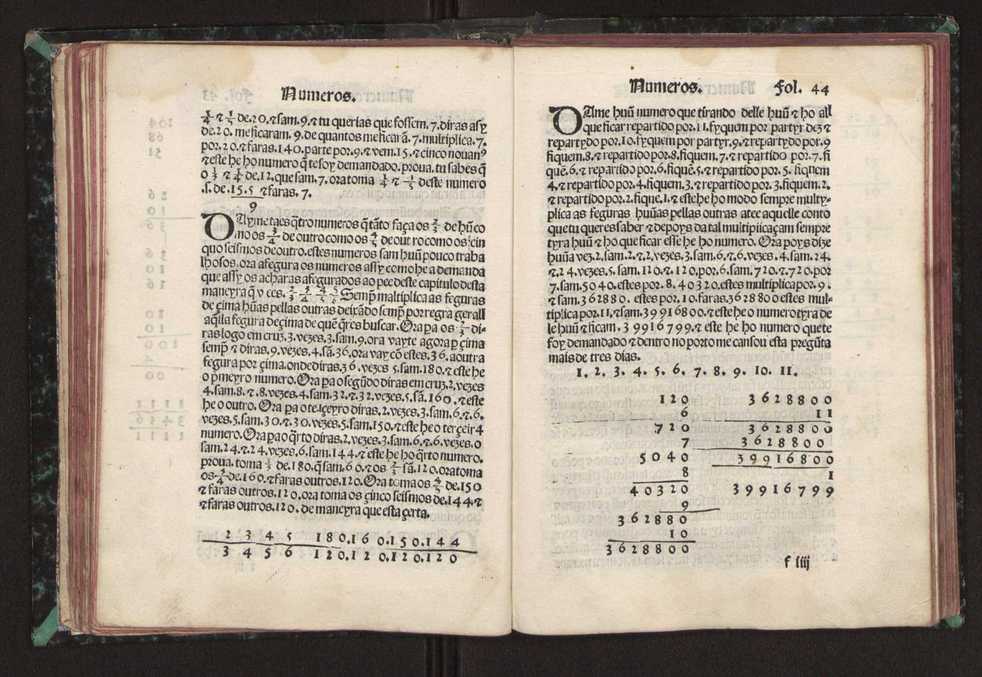 Numeros.
¼ ⁊ ⅕ de.20.⁊ sam.9.⁊ tu querias que fossem.7.diras assy
de.20.me ficaram.9.de quantos me ficarã.7.multiplica.7.
por.20.⁊ faras.140.parte por.9.⁊ vem.15.⁊ cinco nouanº
⁊ este he ho numero q̃ te foy demandado.proua.tu sabes q̃
de.12.que sam.7.ora toma ¼ ⁊ ⅕ deste numero
.s.de.15.5 ⁊ faras.7.
9
DAyme taes q̃tro numeros q̃ tãto faça os ⅔ de hũ co
mo os ¾ de outro como os ⅘ de outro como os çin
quo seismos de outro.estes numeros sam huũ pouco traba
lhosos.ora afegura os numeros assy como he a demanda
que assy os acharas afegurados ao pee deste capitulo desta
maneyra q̃ ves. ⅔ ¾ ⅘ ⅚ Semp̃ multiplica as feguras
de çima hũas pellas outras deixãdo semp̃ por regra gerall
aq̃lla fegura de çima de quẽ q̃res buscar. Ora pa os ⅔ di
ras logo em cruz.3.vezes.3.sam.9.ora vayte agora p̃ çima
semp̃ ⁊ diras.9.vezes.4.sã.36.ora vay cõ estes.36.a outra
fegura por çima.onde diras.36.vezes.5.sam.180.⁊ este he
o p̃meyro numero. Ora pa o segũdo diras em cruz.2.vezes
4.sam.8.⁊.8.vezes.4.sam.32.⁊.32.vezes.5.sã.160.⁊ este
he o outro. Ora pa o te.içeyro diras.2.vezes.3.sam.6.⁊.6.
vezes.5.sam.30.⁊.30.vezes.5.sam.150.⁊ este he o terçeir4
numero. Ora pa o q̃rto diras.2.vezes.3.sam.6.⁊.6.vezes.o
sam.24.⁊.24.vezes.6.sam.144.⁊ este he ho q̃rto numero.
proua.toma ⅓ de.180.q̃ sam.60.⁊ os ⅔ sã.120.ora toma
os ¾ de.160.⁊ faras outros.120. Ora toma os ⅘ de.150
⁊ faras outros.120.ora toma os çinco seismos de.144.⁊
⁊ faras outros.120.de maneyra que esta çerta.
2 3 4 5 180.160.150.144
3 4 5 6 120.120.120.120
Numeros. Fol. 44
DAime huũ numero que tirando delle huũ ⁊ ho all
que ficar repartido por.11.fyquem por partyr dez ⁊
repartydo por.10.fyquem por partyr.9.⁊ repartydo por.9
fiquem.8.⁊ repartido por.8.fiquem.7.⁊ repartido por.7.fi
quẽ.6.⁊ repartido por.6.fiquẽ.5.⁊ repartido por.5.fiquem
4.⁊ repartido por.4.fiquem.3.⁊ repartido por.3.fiquem.2.
⁊ repartido por.2.fique.1.⁊ este he ho modo sempre multy-
plica as feguras huũas pellas outras atee aquelle conto
que tu queres saber ⁊ depoys da tal multipicaçam sempre
tyra huũ ⁊ ho que ficar esse he ho numero. Ora poys dize
huũa vez.2.sam.2.⁊.2.vezes.3.sam.6.⁊.6.vezes.4.sam.24.
⁊.24.vezes.5.sam.120.⁊.120.por.6.sam.720.⁊.720.por
7.sam.5040.estes por.8.40320.estes multiplica por.9.
⁊ sam.362880.estes por.10.faras.3628800 estes mul-
tiplica por.11.⁊ sam.39916800.⁊ este he o numero tyra de
le huũ ⁊ ficam.39916799.⁊ este he ho numero que te
foy demandado ⁊ dentro no porto me cansou esta pregũta
mais de tres dias.
1. 2. 3. 4. 5. 6. 7. 8. 9. 10. 11.
120 3628800
6 11
720 3628800
7 3628800
5040 39916800
8 1
40320 39916799
9
362880
10
3628800
f iiij